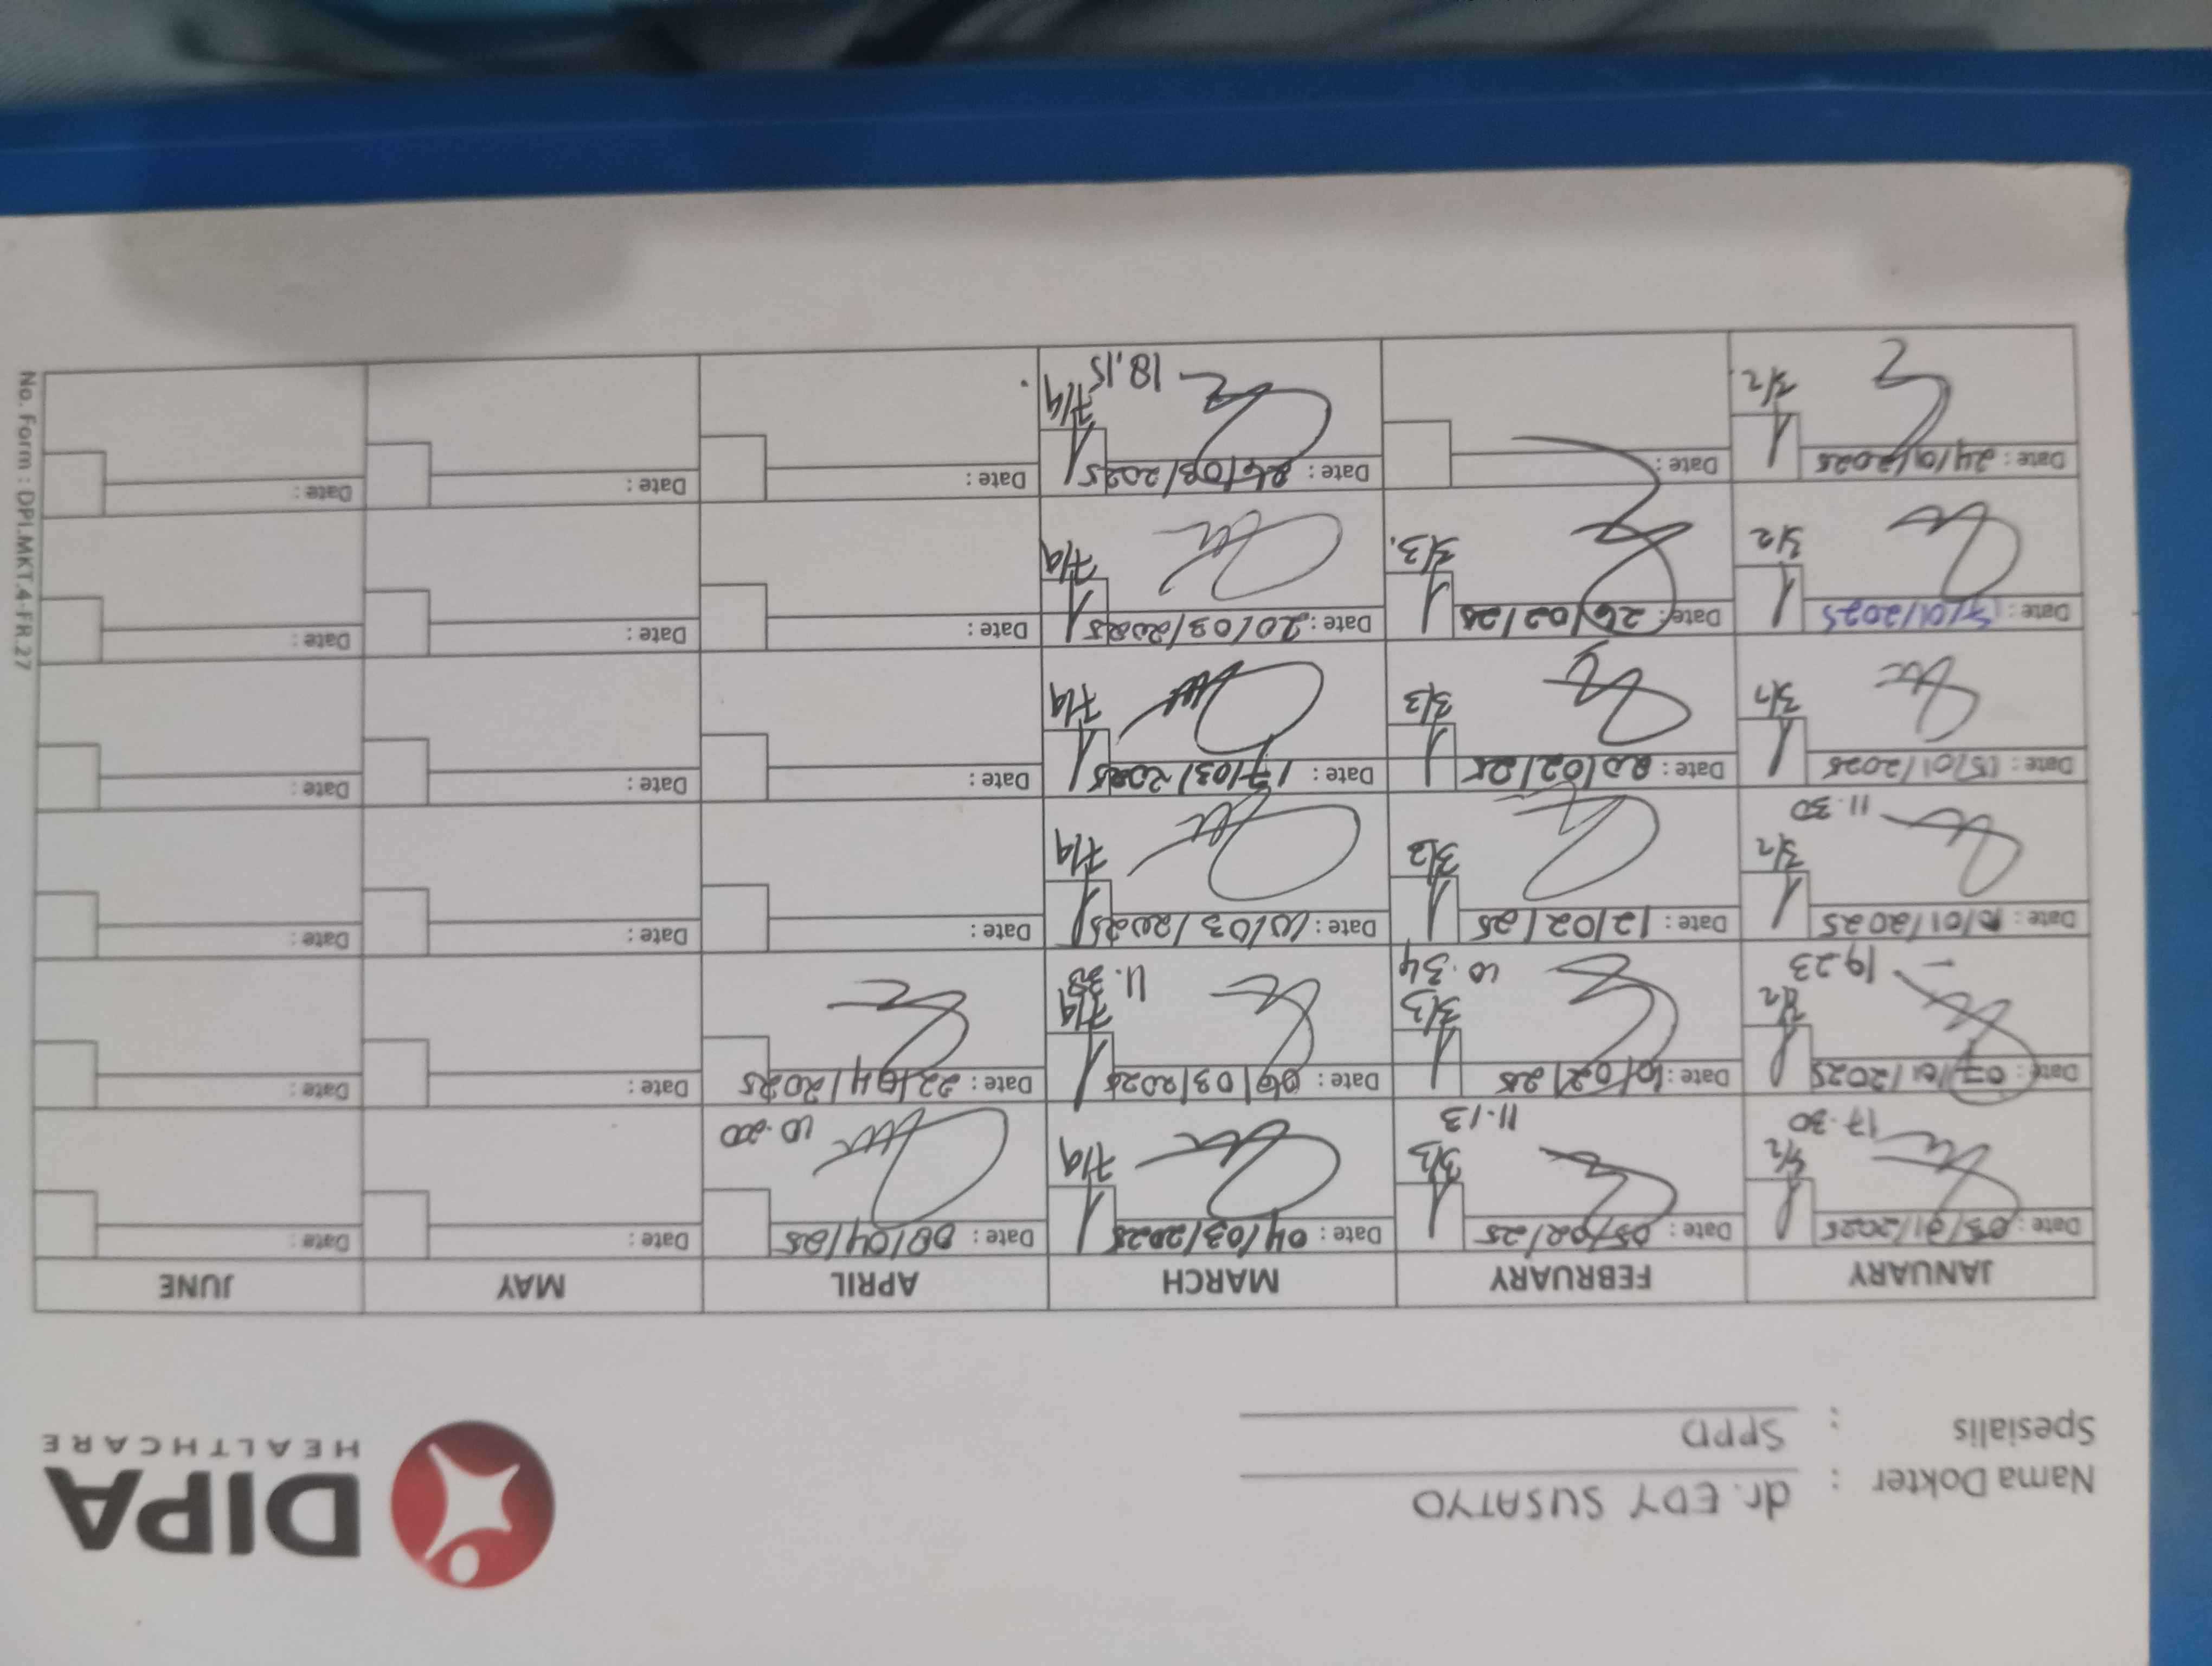 Nama Dokter : dr. EDY SUSATYO
Spesialis : SPPD
DIPA
HEALTHCARE
JANUARY FEBRUARY MARCH APRIL MAY JUNE
Date: 03/01/2025 Date: 05/02/25 Date: 04/03/2025 Date: 08/04/25 Date: Date:
17.30 3/3 11.13 7/4 10.20
Date: 07/01/2025 Date: 10/02/25 Date: 06/03/2025 Date: 22/04/2025 Date: Date:
19.23 3/3 10.34 7/4 11.38
Date: 10/01/2025 Date: 12/02/25 Date: 10/03/2025 Date: Date: Date:
11.30 3/2 3/3 7/4
Date: 15/01/2025 Date: 20/02/25 Date: 17/03/2025 Date: Date: Date:
3/2 3/3 7/4
Date: 17/01/2025 Date: 26/02/25 Date: 20/03/2025 Date: Date: Date:
3/2 3/3 7/4
Date: 24/01/2025 Date: Date: 26/03/2025 Date: Date: Date:
3/2 7/4 18.15
No. Form : DPI.MKT.4-FR.27